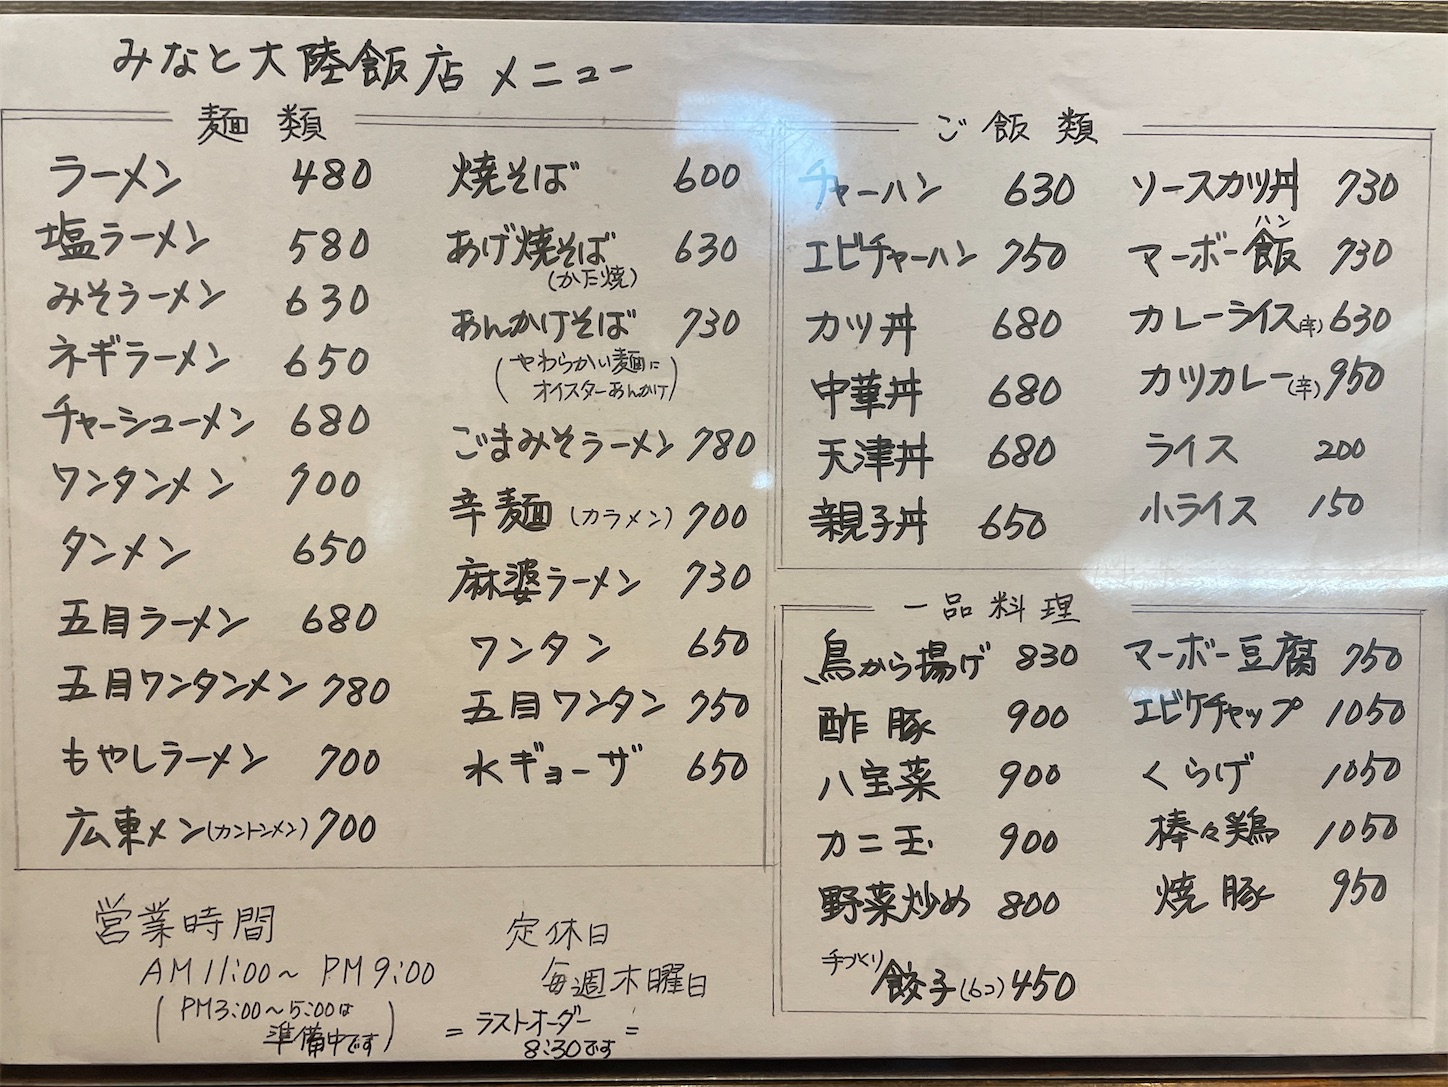 みなと大陸飯店 メニュー
麺類
ラーメン 480
塩ラーメン 580
みそラーメン 630
ネギラーメン 650
チャーシューメン 680
ワンタンメン 700
タンメン 650
五目ラーメン 680
五目ワンタンメン 780
もやしラーメン 700
広東メン(カントンメン) 700
焼そば 600
あげ焼そば 630
(かた焼)
あんかけそば 730
(やわらかい麺に
オイスターあんかけ)
ごまみそラーメン 780
辛麺(カラメン) 700
麻婆ラーメン 730
ワンタン 650
五目ワンタン 750
水ギョーザ 650
ご飯類
チャーハン 630
エビチャーハン 750
カツ丼 680
中華丼 680
天津丼 680
親子丼 650
ソースカツ丼 730
ハン
マーボー飯 730
カレーライス(辛) 630
カツカレー(辛) 950
ライス 200
小ライス 150
一品料理
鳥から揚げ 830
酢豚 900
八宝菜 900
カニ玉 900
野菜炒め 800
手づくり餃子(6コ) 450
マーボー豆腐 750
エビケチャップ 1050
くらげ 1050
棒々鶏 1050
焼豚 950
営業時間
AM11:00〜PM9:00
(PM3:00〜5:00は
準備中です)
定休日
毎週木曜日
=ラストオーダー=
8:30です